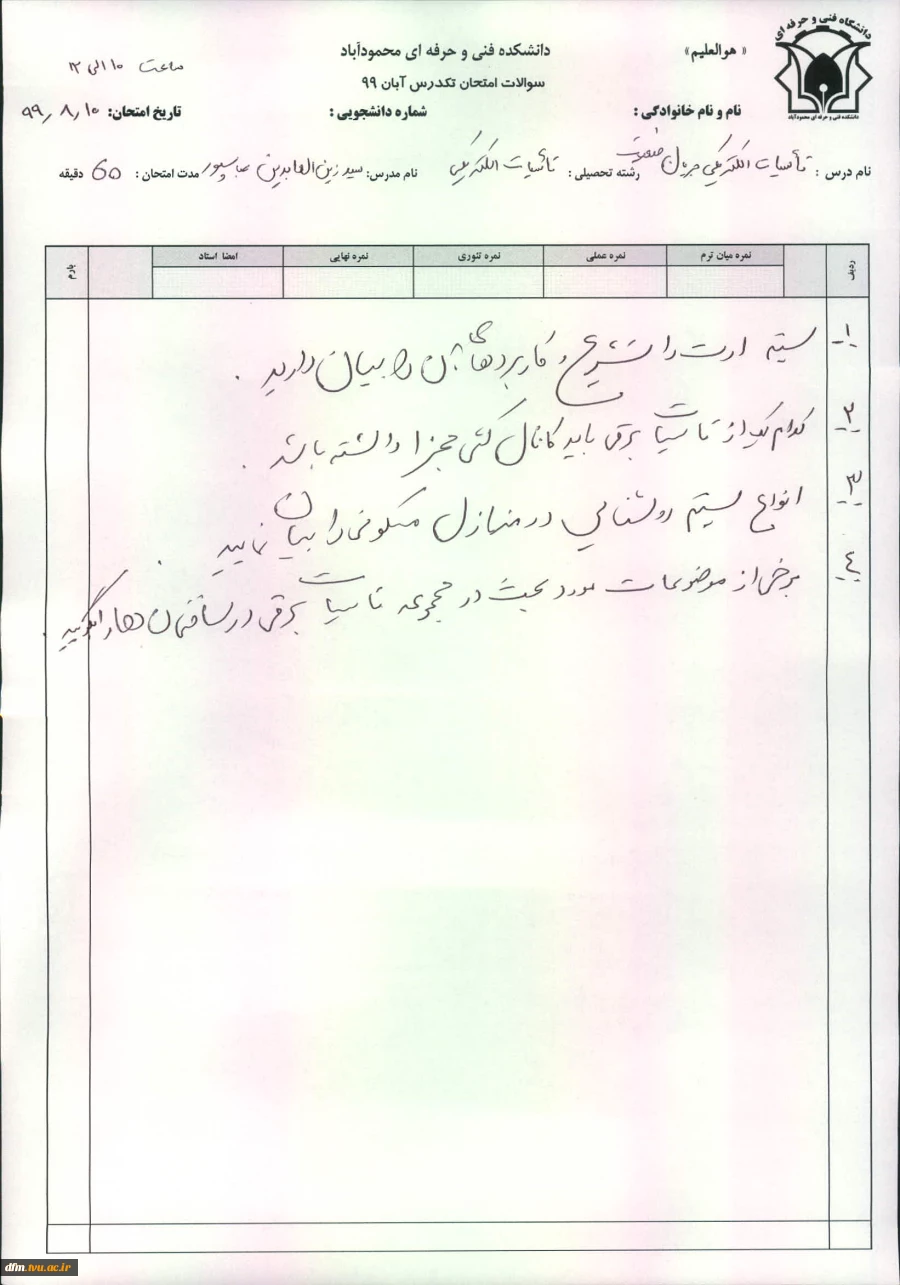 دانشگاه فنی و حرفه ای
دانشکده فنی و حرفه ای محمودآباد
« هوالعلیم»
دانشکده فنی و حرفه ای محمودآباد
ساعت ۱۰ الی ۱۲
سوالات امتحان تکدرس آبان ۹۹
نام و نام خانوادگی :
شماره دانشجویی :
تاریخ امتحان: ۹۹/۸/۱۰
نام درس : تأسیسات الکتریکی جریان ضعیف
رشته تحصیلی : تأسیسات الکتریکی
نام مدرس: سید زین العابدین عباسپور
مدت امتحان : 60 دقیقه
ردیف نمره میان ترم نمره عملی نمره تئوری نمره نهایی امضا استاد بارم
۱- سیستم ارت را تشریح و کاربردهای آن را بیان دارید .
۲- کدام یک از تاسیسات برقی باید کانال کشی مجزا داشته باشد .
۳- انواع سیستم روشنایی در منازل مسکونی را بیان نمایید .
۴- برخی از موضوعات مورد بحث در مجموعه تاسیسات برقی در ساختمان ها را بگویید .
dfm.tvu.ac.ir